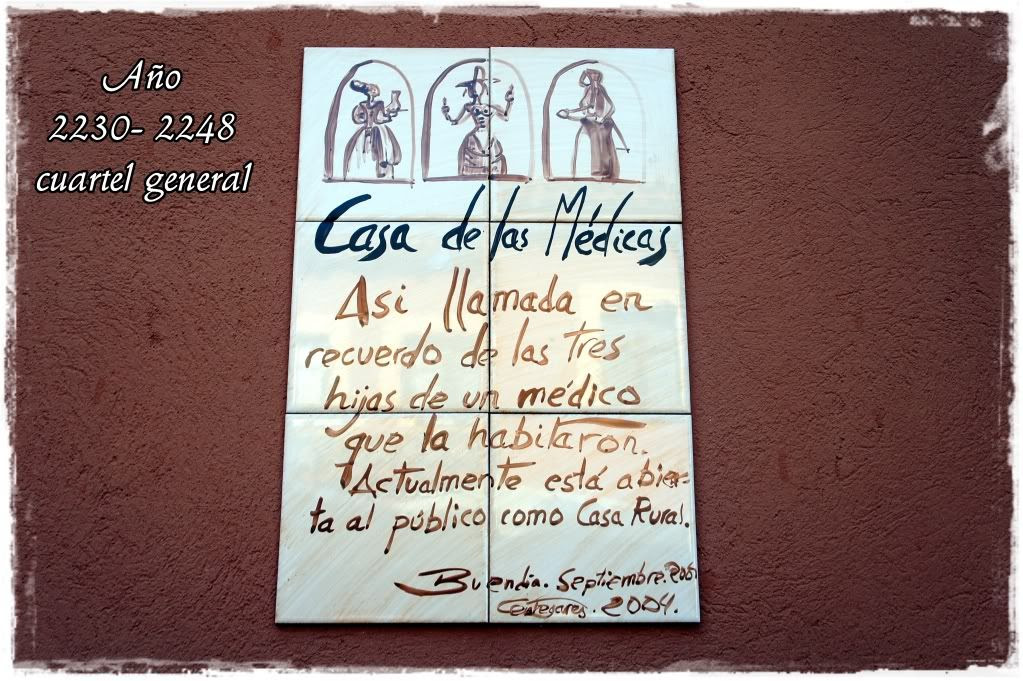 Año
2230- 2248
cuartel general
Casa de las Médicas
Asi llamada en
recuerdo de las tres
hijas de un médico
que la habitaron.
Actualmente está abier=
ta al público como Casa Rural.
Buendia. Septiembre.
2004.